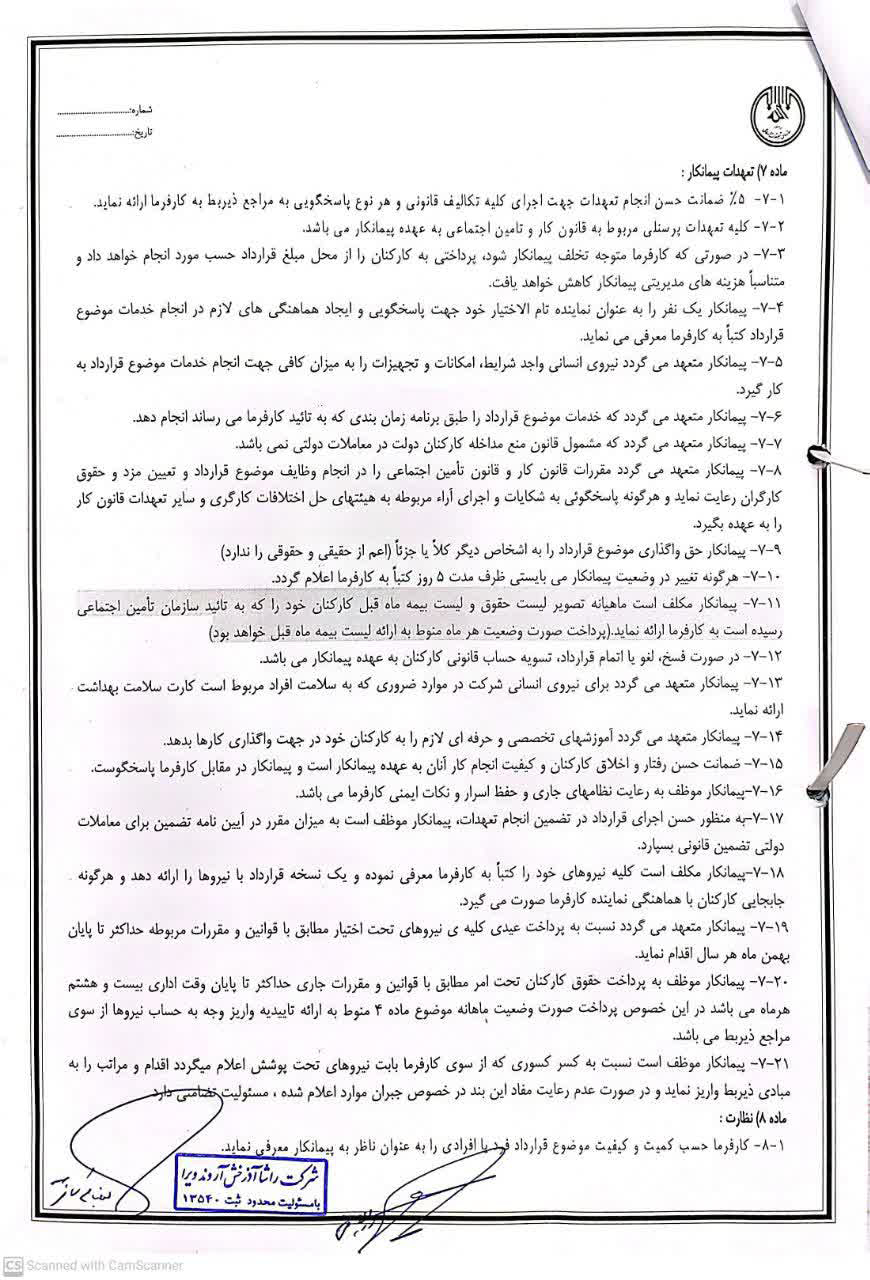 شماره:............................
تاریخ:............................
ماده ۷) تعهدات پیمانکار :
۷-۱- ۵٪ ضمانت حسن انجام تعهدات جهت اجرای کلیه تکالیف قانونی و هر نوع پاسخگویی به مراجع ذیربط به کارفرما ارائه نماید.
۷-۲- کلیه تعهدات پرسنلی مربوط به قانون کار و تامین اجتماعی به عهده پیمانکار می باشد.
۷-۳- در صورتی که کارفرما متوجه تخلف پیمانکار شود، پرداختی به کارکنان را از محل مبلغ قرارداد حسب مورد انجام خواهد داد و
متناسباً هزینه های مدیریتی پیمانکار کاهش خواهد یافت.
۷-۴- پیمانکار یک نفر را به عنوان نماینده تام الاختیار خود جهت پاسخگویی و ایجاد هماهنگی های لازم در انجام خدمات موضوع
قرارداد کتباً به کارفرما معرفی می نماید.
۷-۵- پیمانکار متعهد می گردد نیروی انسانی واجد شرایط، امکانات و تجهیزات را به میزان کافی جهت انجام خدمات موضوع قرارداد به
کار گیرد.
۷-۶- پیمانکار متعهد می گردد که خدمات موضوع قرارداد را طبق برنامه زمان بندی که به تائید کارفرما می رساند انجام دهد.
۷-۷- پیمانکار متعهد می گردد که مشمول قانون منع مداخله کارکنان دولت در معاملات دولتی نمی باشد.
۷-۸- پیمانکار متعهد می گردد مقررات قانون کار و قانون تأمین اجتماعی را در انجام وظایف موضوع قرارداد و تعیین مزد و حقوق
کارگران رعایت نماید و هرگونه پاسخگوئی به شکایات و اجرای آراء مربوطه به هیئتهای حل اختلافات کارگری و سایر تعهدات قانون کار
را به عهده بگیرد.
۷-۹- پیمانکار حق واگذاری موضوع قرارداد را به اشخاص دیگر کلاً یا جزئاً (اعم از حقیقی و حقوقی را ندارد)
۷-۱۰- هرگونه تغییر در وضعیت پیمانکار می بایستی ظرف مدت ۵ روز کتباً به کارفرما اعلام گردد.
۷-۱۱- پیمانکار مکلف است ماهیانه تصویر لیست حقوق و لیست بیمه ماه قبل کارکنان خود را که به تائید سازمان تأمین اجتماعی
رسیده است به کارفرما ارائه نماید.(پرداخت صورت وضعیت هر ماه منوط به ارائه لیست بیمه ماه قبل خواهد بود)
۷-۱۲- در صورت فسخ، لغو یا اتمام قرارداد، تسویه حساب قانونی کارکنان به عهده پیمانکار می باشد.
۷-۱۳- پیمانکار متعهد می گردد برای نیروی انسانی شرکت در موارد ضروری که به سلامت افراد مربوط است کارت سلامت بهداشت
ارائه نماید.
۷-۱۴- پیمانکار متعهد می گردد آموزشهای تخصصی و حرفه ای لازم را به کارکنان خود در جهت واگذاری کارها بدهد.
۷-۱۵- ضمانت حسن رفتار و اخلاق کارکنان و کیفیت انجام کار آنان به عهده پیمانکار است و پیمانکار در مقابل کارفرما پاسخگوست.
۷-۱۶-پیمانکار موظف به رعایت نظامهای جاری و حفظ اسرار و نکات ایمنی کارفرما می باشد.
۷-۱۷-به منظور حسن اجرای قرارداد در تضمین انجام تعهدات، پیمانکار موظف است به میزان مقرر در آیین نامه تضمین برای معاملات
دولتی تضمین قانونی بسپارد.
۷-۱۸-پیمانکار مکلف است کلیه نیروهای خود را کتباً به کارفرما معرفی نموده و یک نسخه قرارداد با نیروها را ارائه دهد و هرگونه
جابجایی کارکنان با هماهنگی نماینده کارفرما صورت می گیرد.
۷-۱۹- پیمانکار متعهد می گردد نسبت به پرداخت عیدی کلیه ی نیروهای تحت اختیار مطابق با قوانین و مقررات مربوطه حداکثر تا پایان
بهمن ماه هر سال اقدام نماید.
۷-۲۰- پیمانکار موظف به پرداخت حقوق کارکنان تحت امر مطابق با قوانین و مقررات جاری حداکثر تا پایان وقت اداری بیست و هشتم
هرماه می باشد در این خصوص پرداخت صورت وضعیت ماهانه موضوع ماده ۴ منوط به ارائه تاییدیه واریز وجه به حساب نیروها از سوی
مراجع ذیربط می باشد.
۷-۲۱- پیمانکار موظف است نسبت به کسر کسوری که از سوی کارفرما بابت نیروهای تحت پوشش اعلام میگردد اقدام و مراتب را به
مبادی ذیربط واریز نماید و در صورت عدم رعایت مفاد این بند در خصوص جبران موارد اعلام شده ، مسئولیت تضامنی دارد.
ماده ۸) نظارت :
۸-۱- کارفرما حسب کمیت و کیفیت موضوع قرارداد فرد یا افرادی را به عنوان ناظر به پیمانکار معرفی نماید.
شرکت راشا آذرخش آروند ویرا
بامسئولیت محدود ثبت ۱۳۵۴۰
CS Scanned with CamScanner